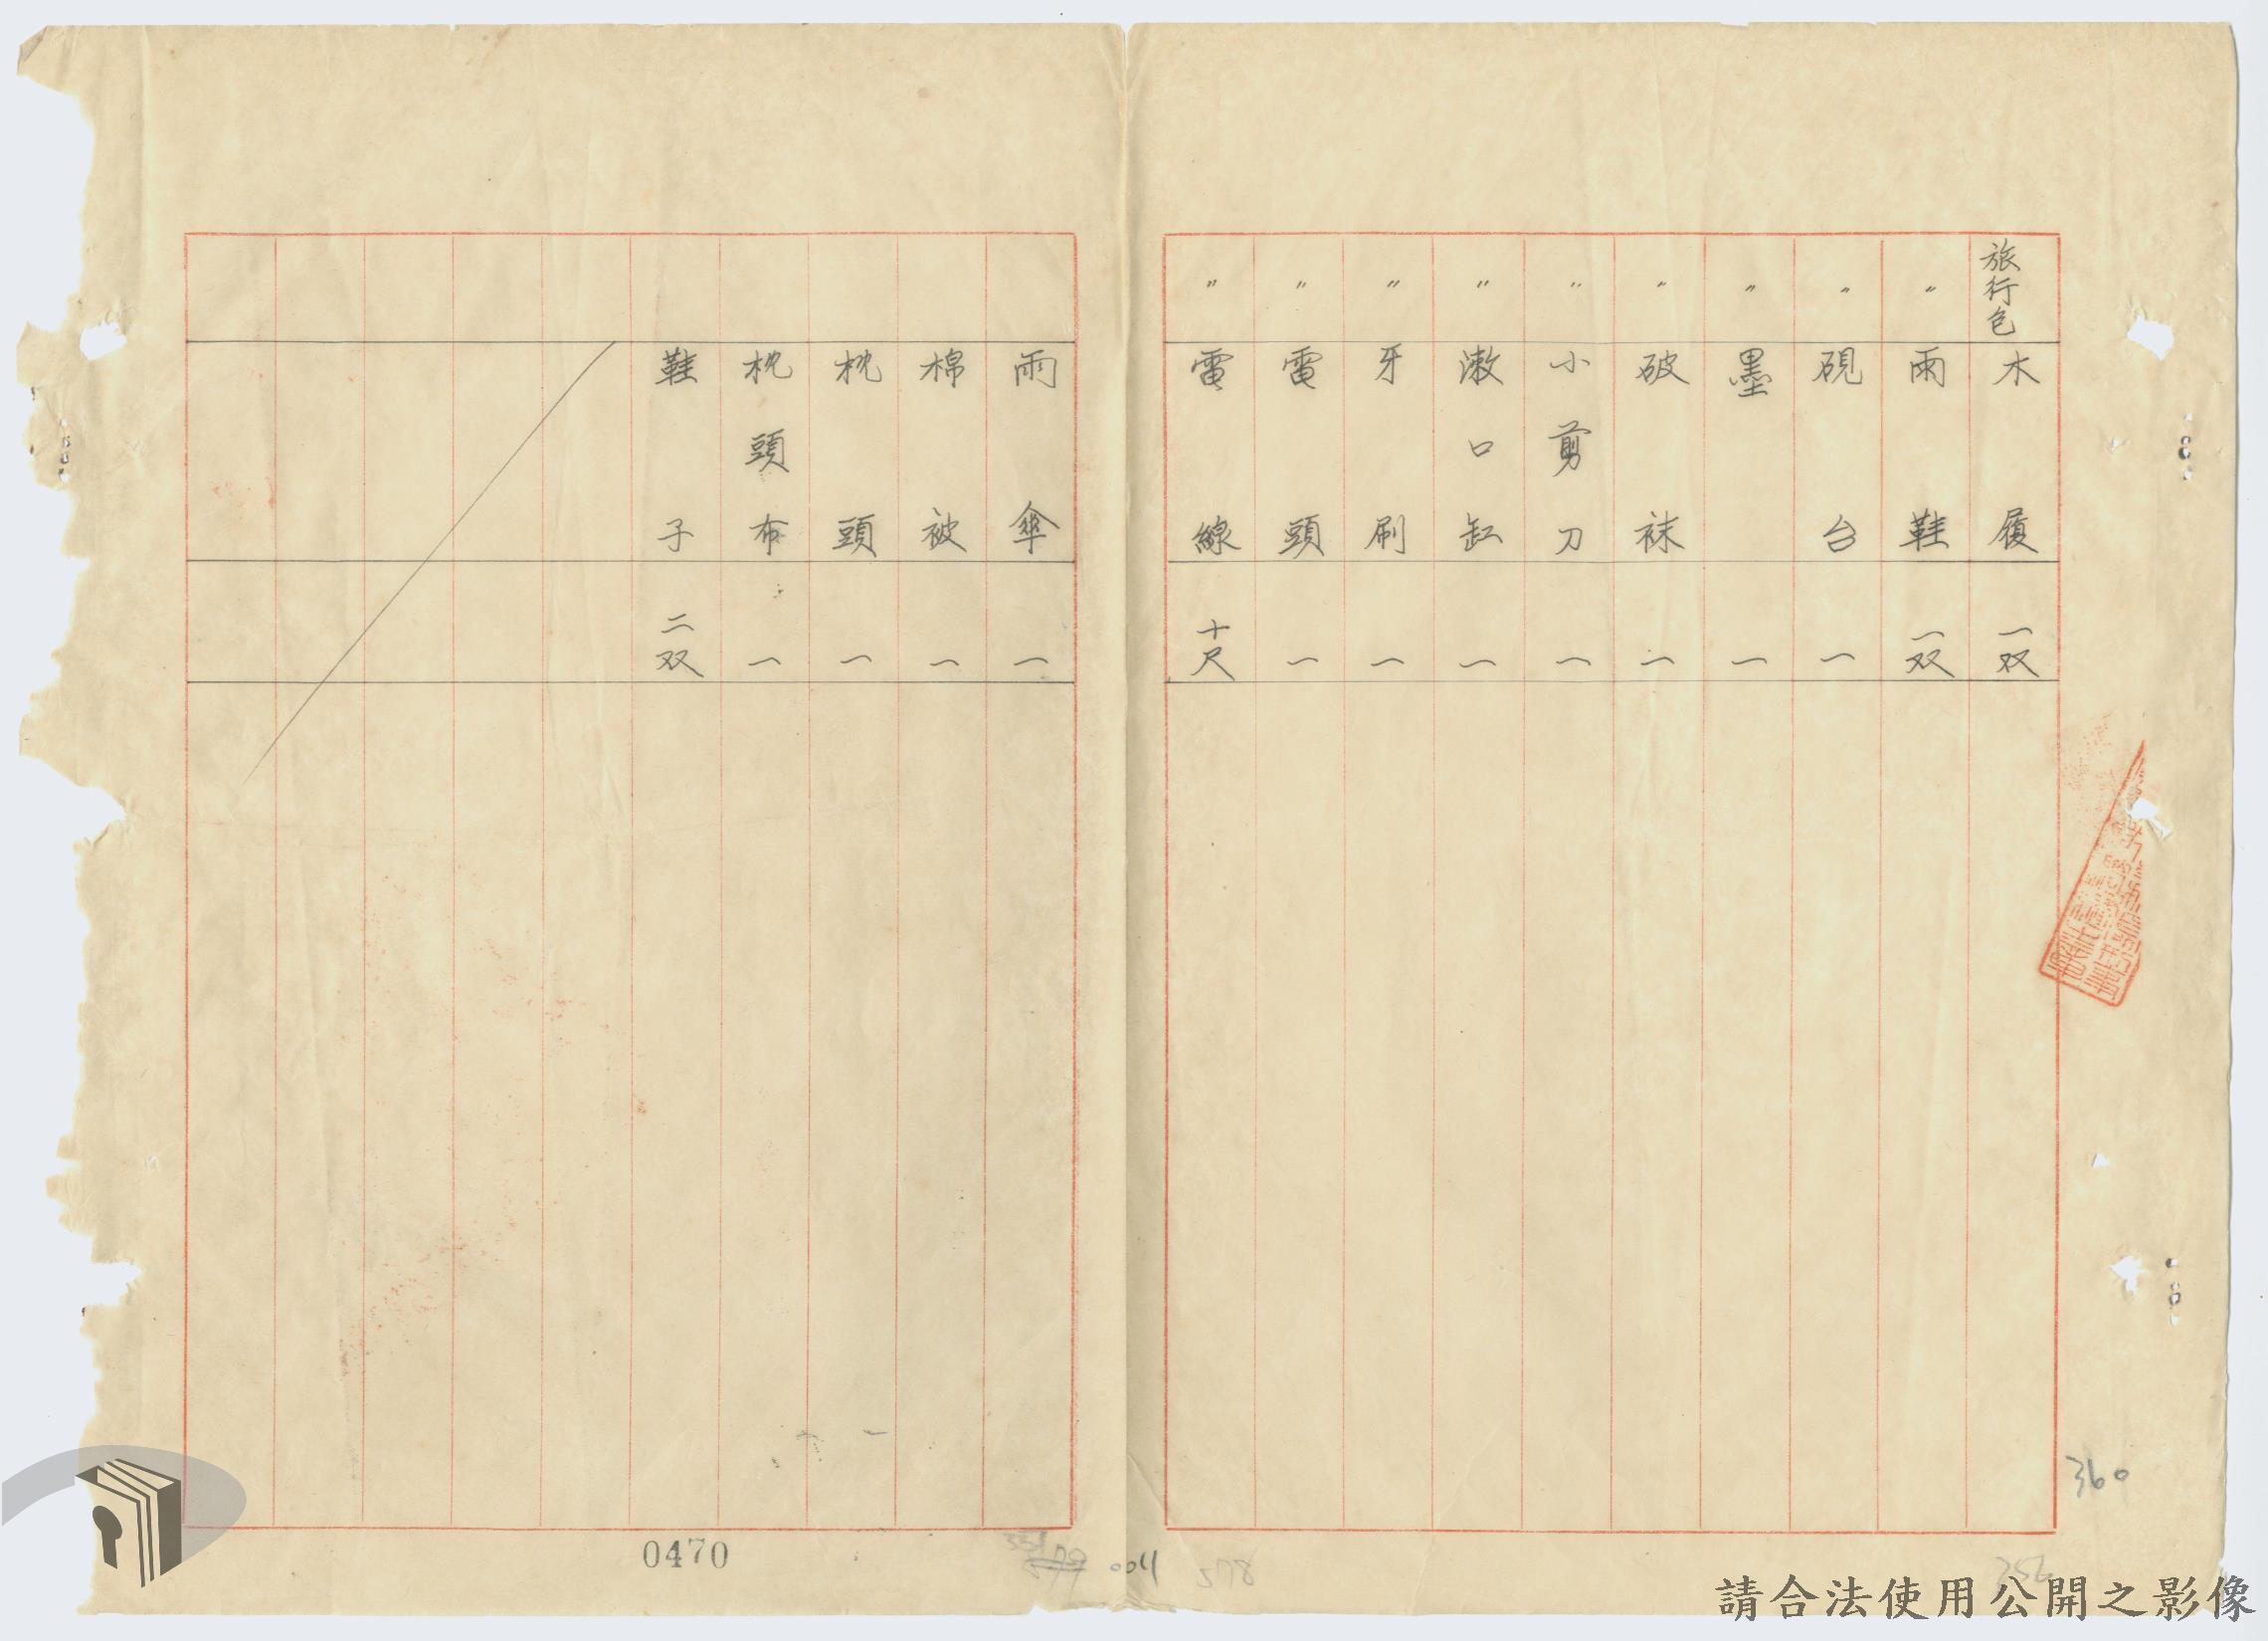 旅行包 木履 一双
〃 雨鞋 一双
〃 硯台 一
〃 墨 一
〃 破袜 一
〃 小剪刀 一
〃 漱口缸 一
〃 牙刷 一
〃 電頭 一
〃 電線 十尺
雨傘 一
棉被 一
枕頭 一
枕頭布 一
鞋子 二双
360
0470
0011
578
356
請合法使用公開之影像